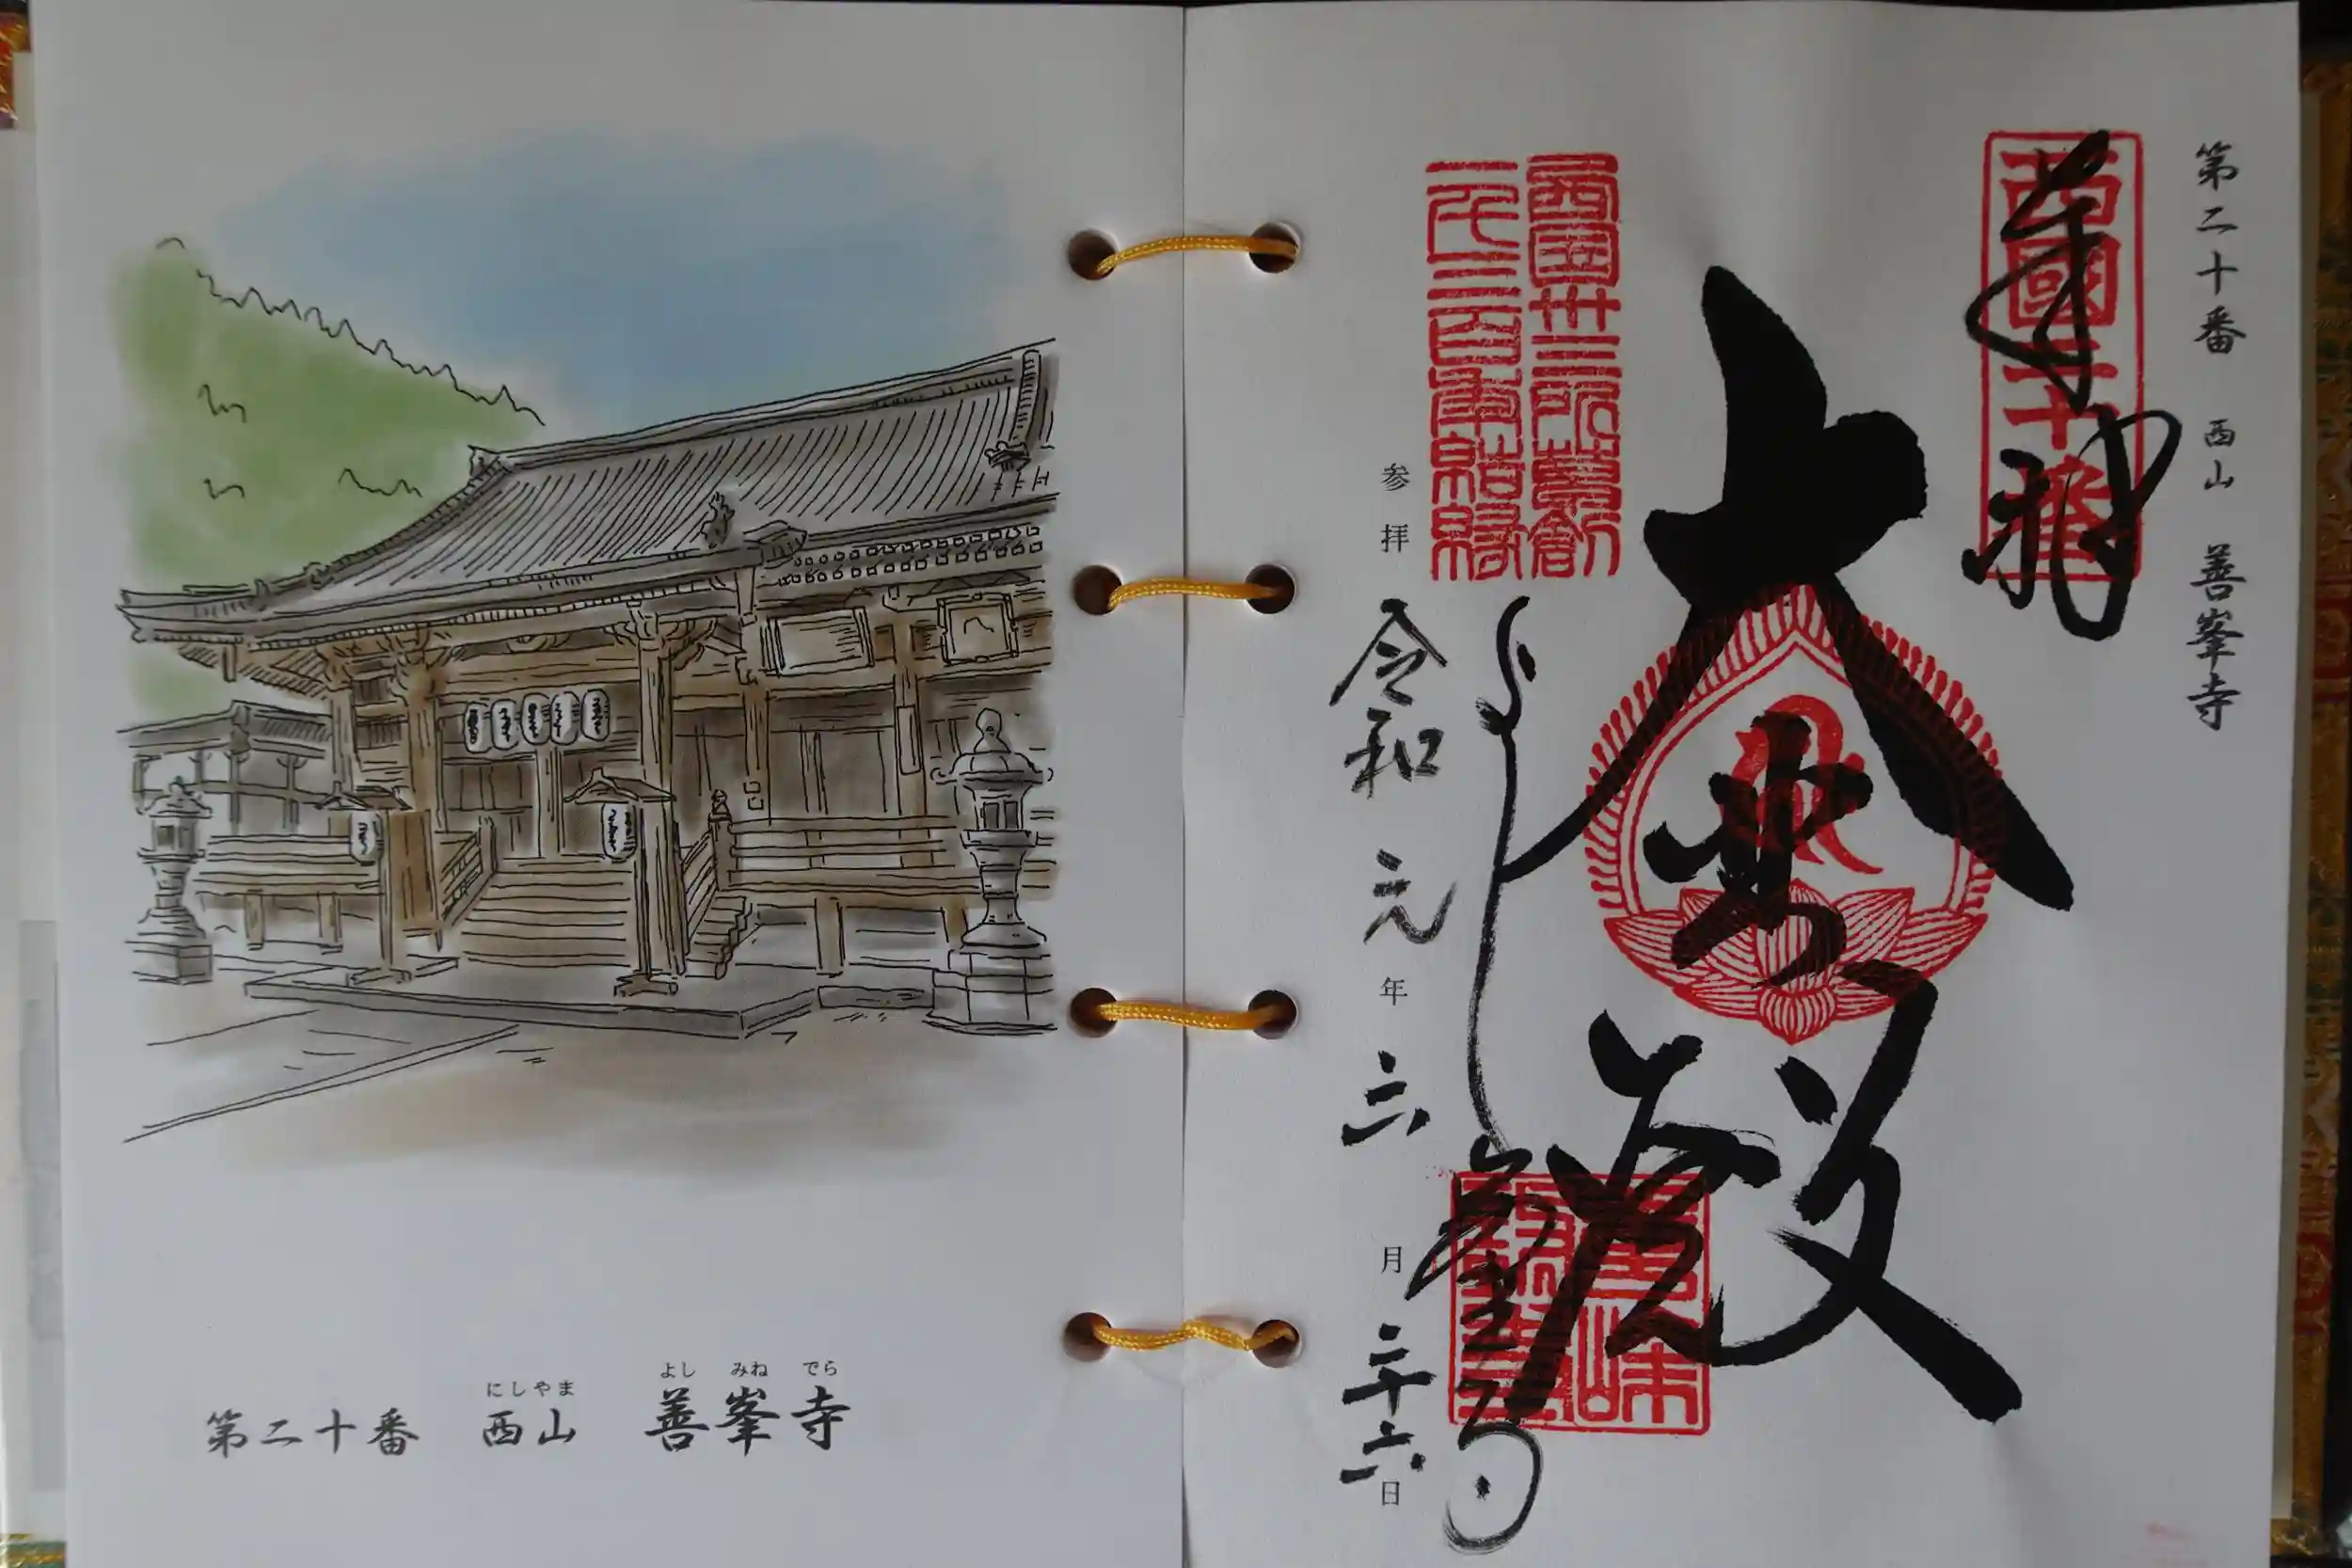 第二十番 西山 善峯寺
奉拝
西國二十番
大悲殿
西国卅三所草創
一千三百年結縁
善峯寺
参拝 令和元年六月二十六日
よし みね でら
にしやま
第二十番 西山 善峯寺